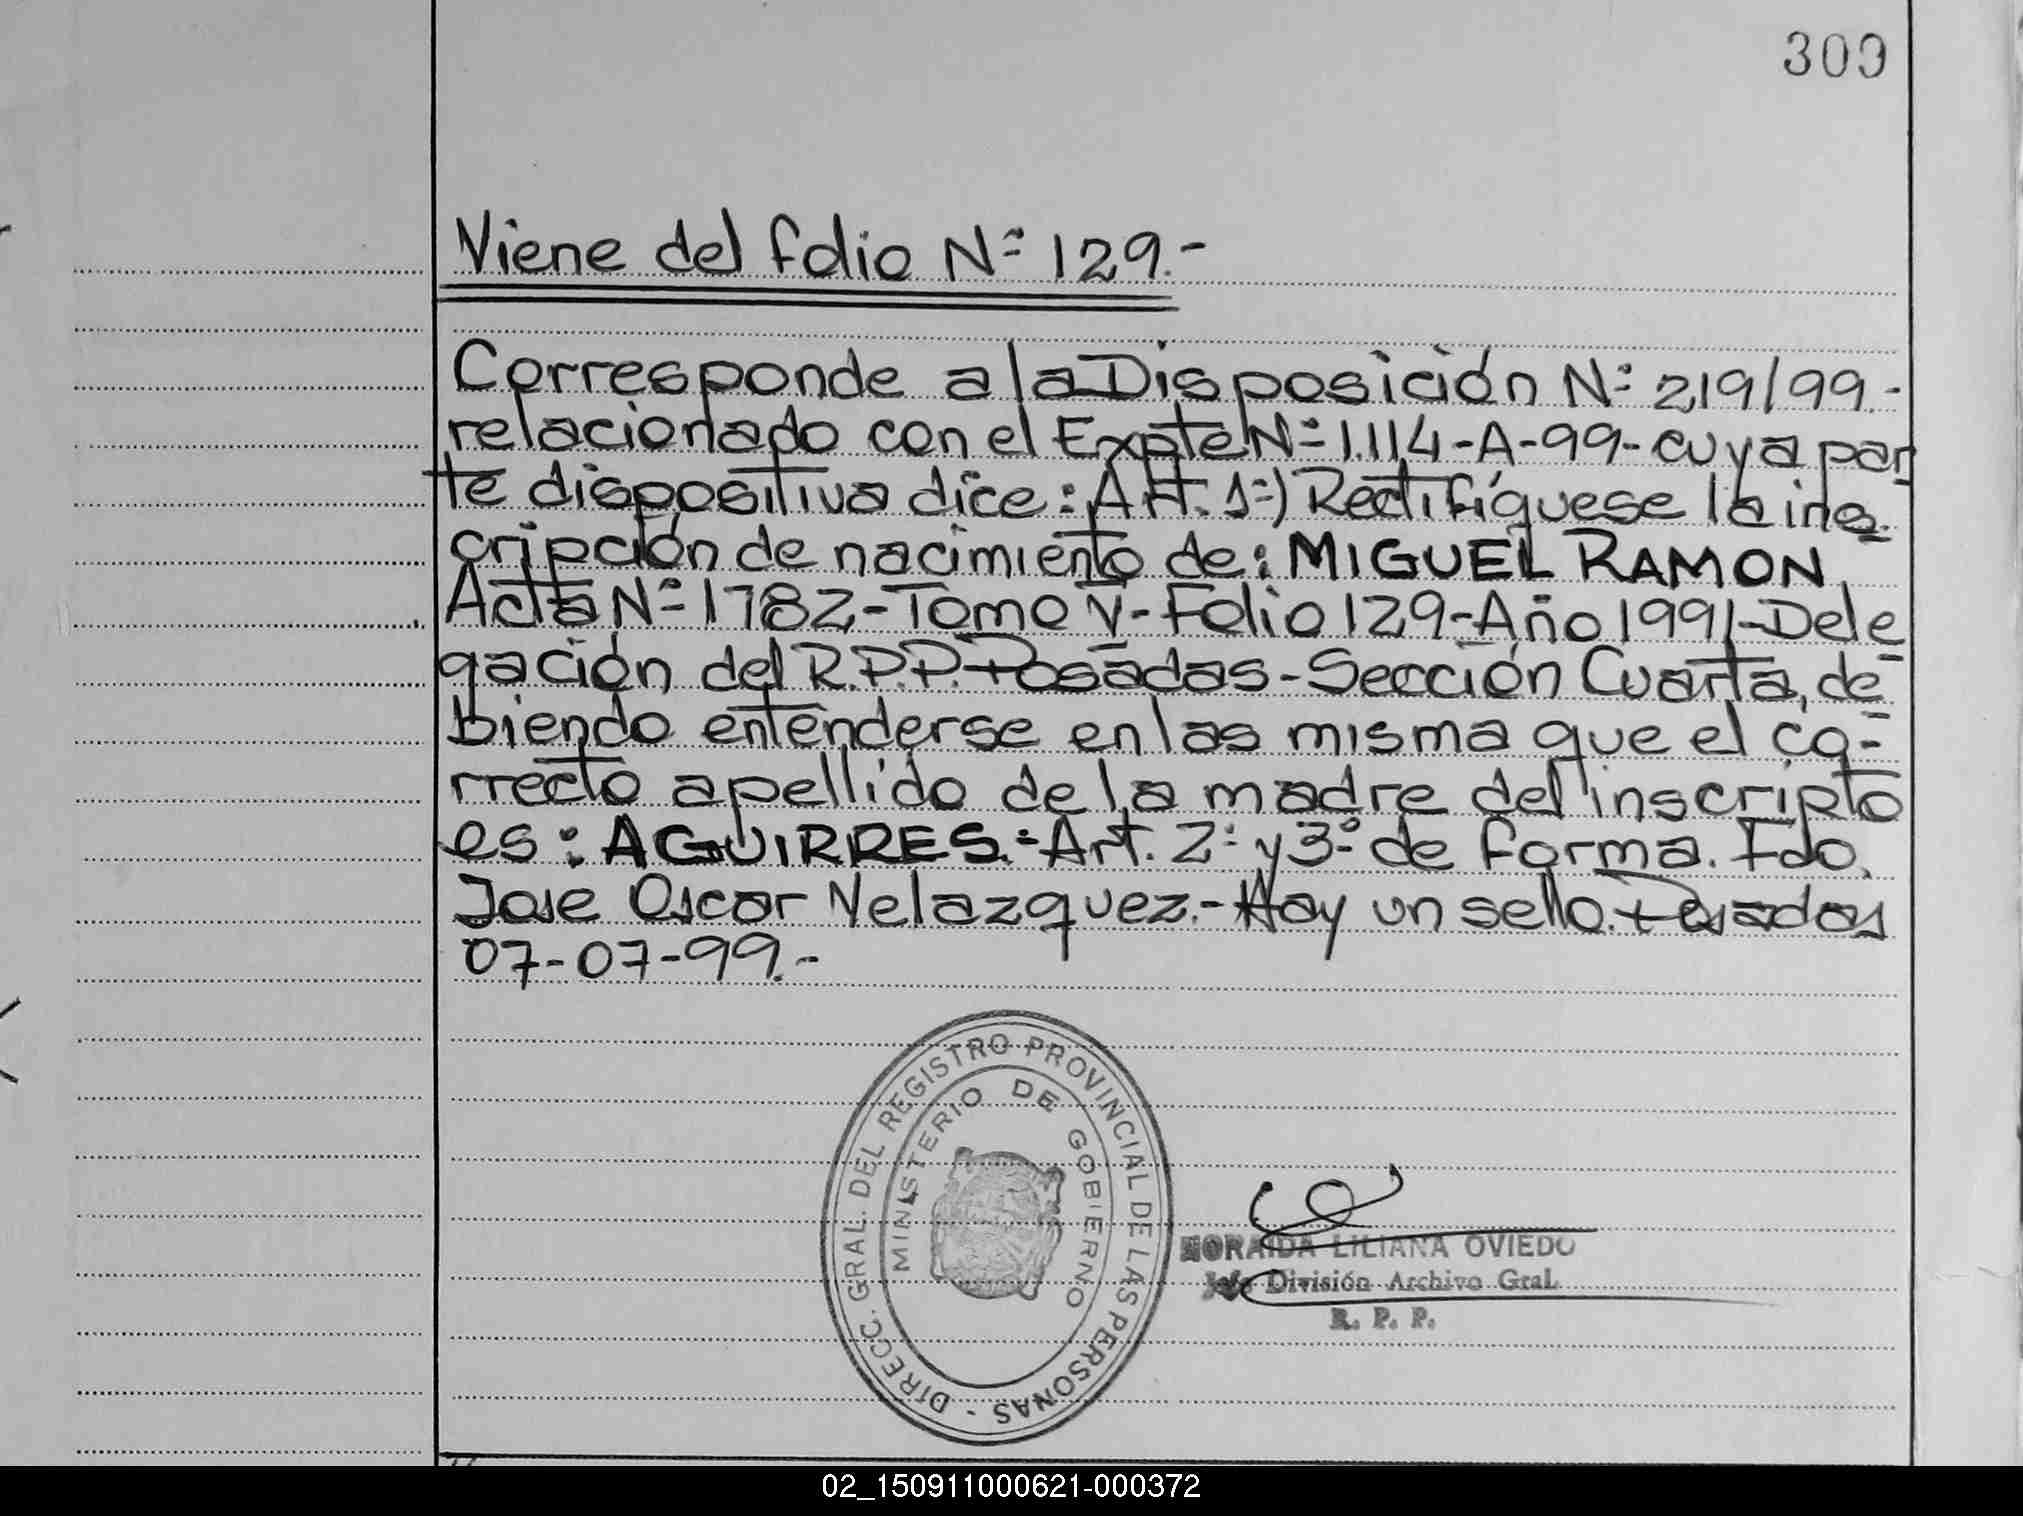 300
Viene del folio Nº 129.-
Corresponde a la Disposición Nº 219/99.-
relacionado con el Expte Nº 1.114-A-99- cuya par
te dispositiva dice: Art. 1º) Rectifíquese la ins-
cripción de nacimiento de: MIGUEL RAMON,
Acta Nº 1782-Tomo V-Folio 129-Año 1991-Dele-
gación del R.P.P. Posadas-Sección Cuarta, de-
biendo entenderse en las misma que el co-
rrecto apellido de la madre del inscripto
es: AGUIRRES.-Art. 2º y 3º de forma. Fdo.
Jose Oscar Velazquez.-Hay un sello. Posadas
07-07-99.-
DIRECC. GRAL. DEL REGISTRO PROVINCIAL DE LAS PERSONAS -
MINISTERIO DE GOBIERNO
LILIANA OVIEDO
Jefe División Archivo Gral.
R. P. P.
02_150911000621-000372